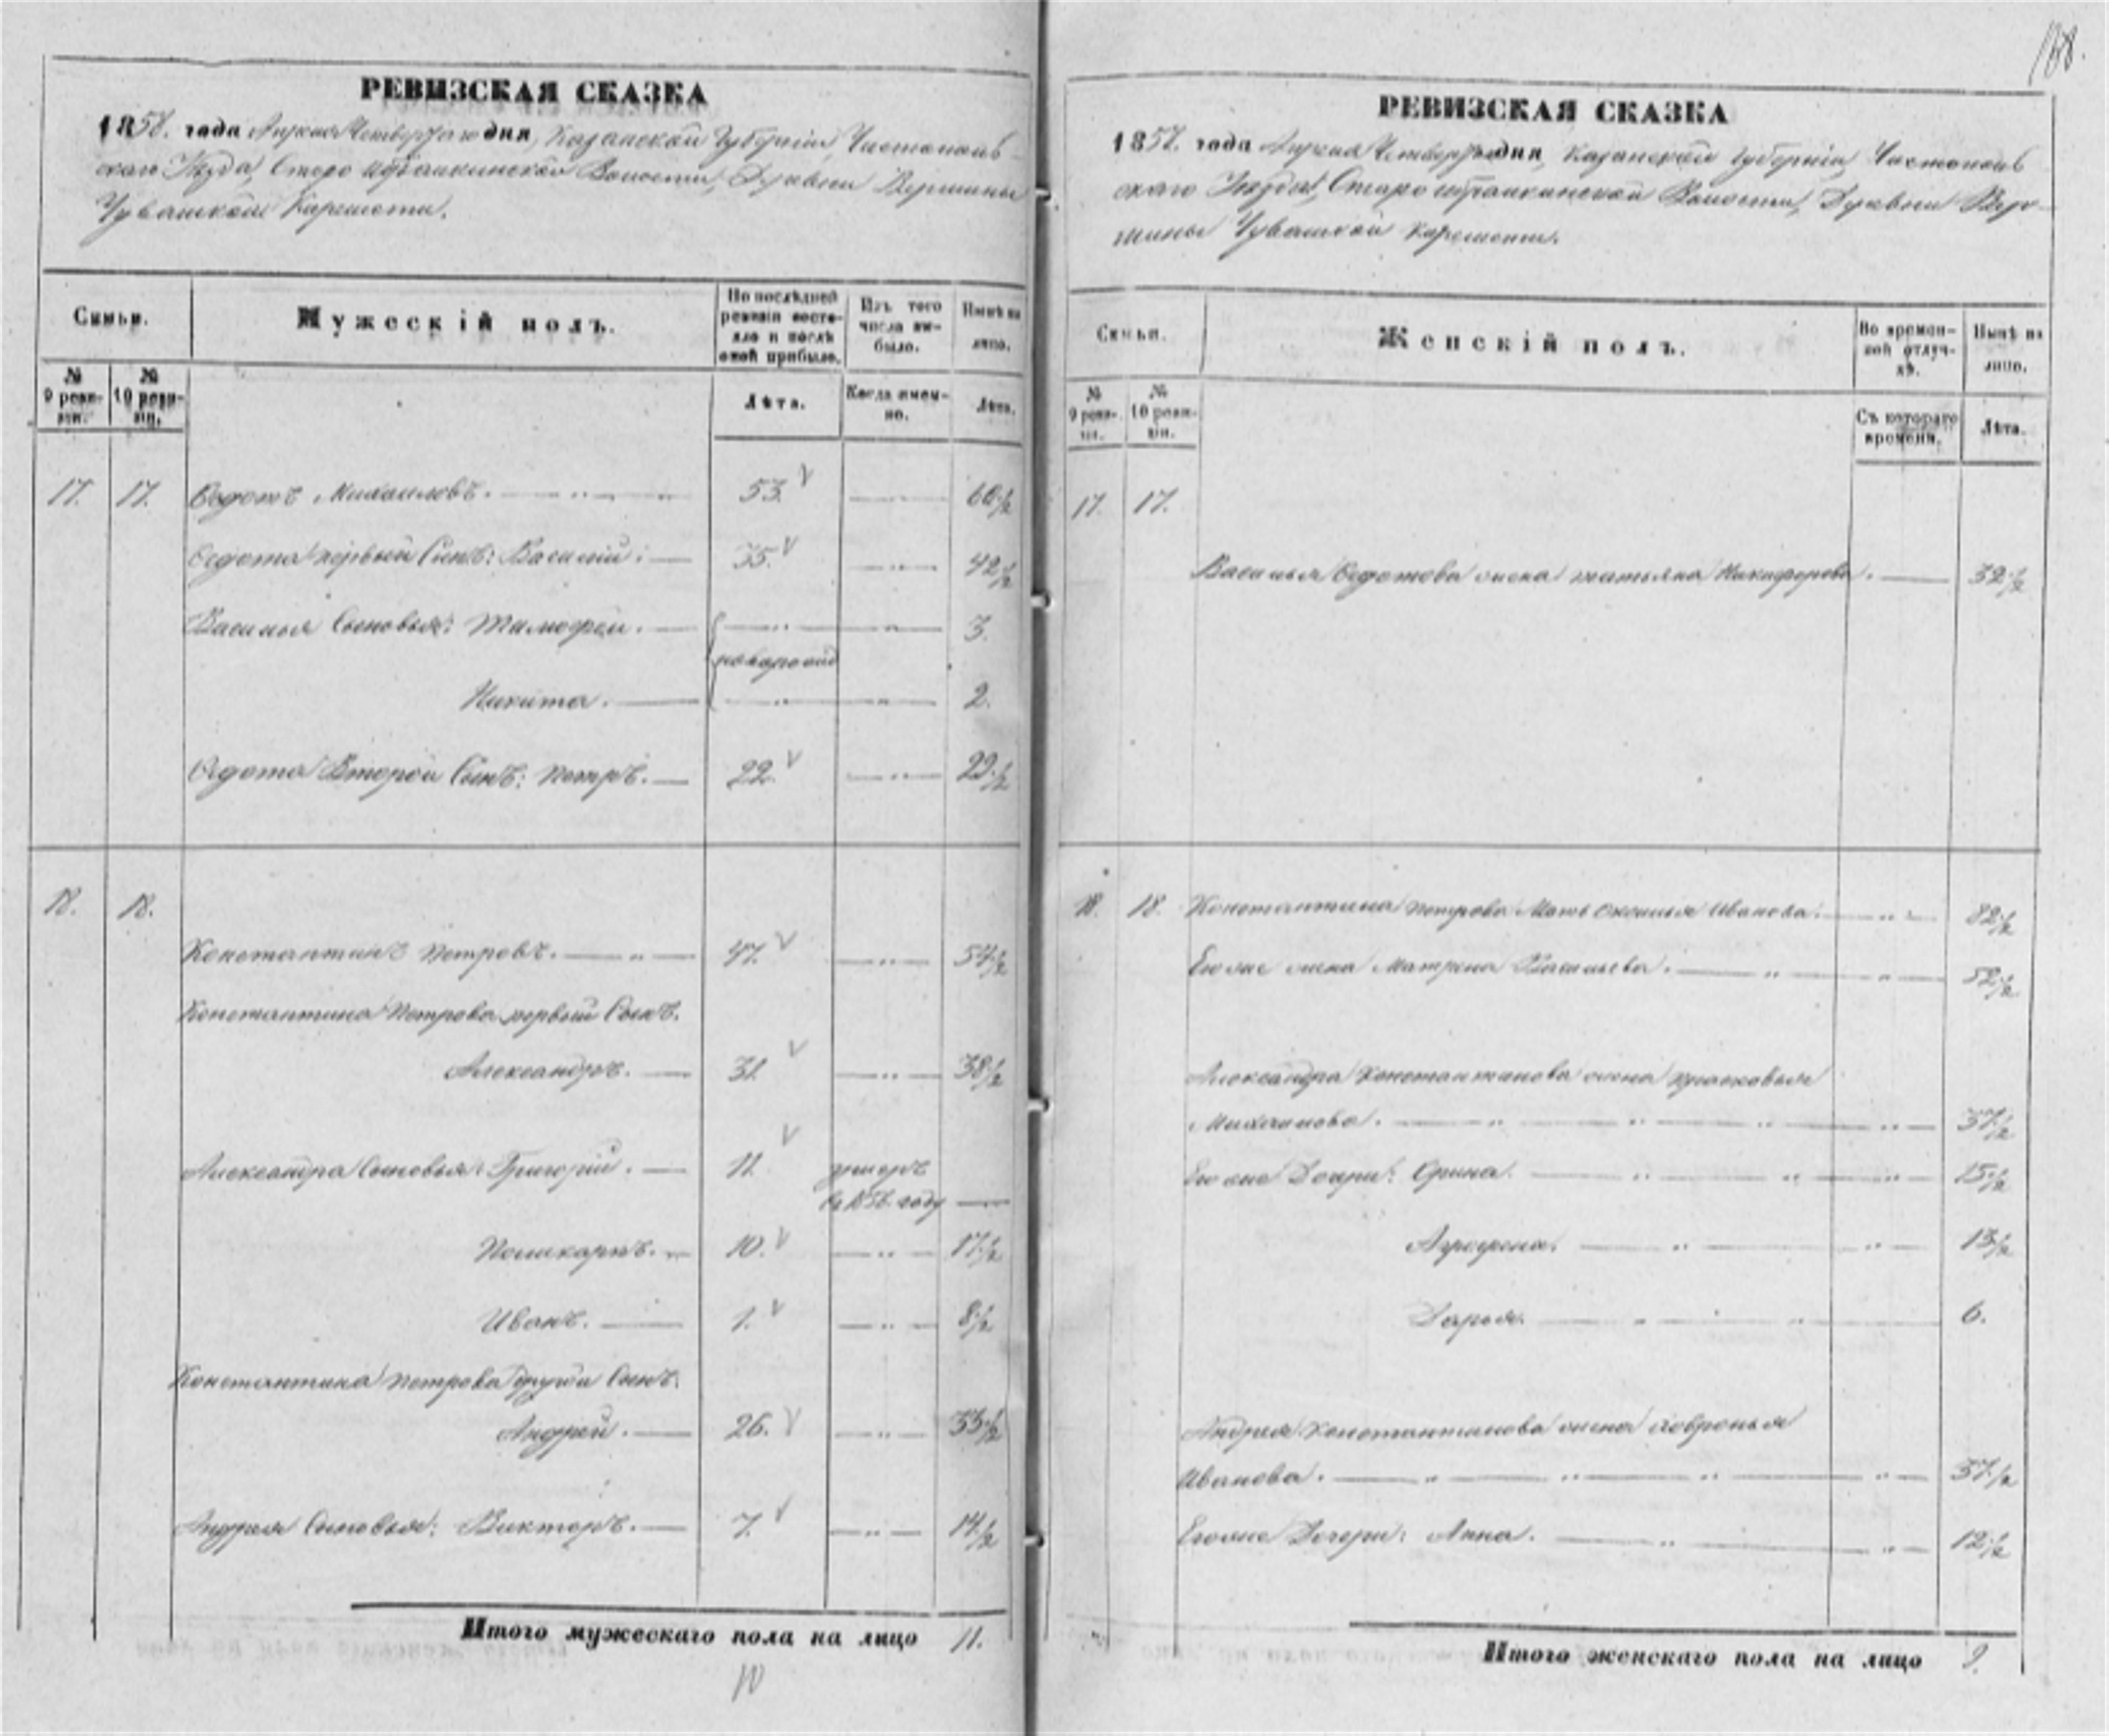 188.
РЕВИЗСКАЯ СКАЗКА
1858. года Апреля Четвертаго дня, Казанской Губерніи, Чистополь
скаго Уезда, Старо Волости, Деревни Вершины
Чувашской Киремети.
Семьи.
Мужескій полъ.
По послѣдней
ревизіи состо-
яло и послѣ
оной прибыло.
Изъ того
числа вы-
было.
Нынѣ на
лицо.
№
9 реви-
зіи.
№
10 реви-
зіи.
Лѣта.
Когда имен-
но.
Лѣта.
17. 17. Федотъ Михаиловъ. 53. 60 1/2
Федота первый Сынъ: Василій: 35. 42 1/2
Василья Сыновья: Тимофей. 3.
новорожд
Никита. 2.
Федота Второй Сынъ: Петръ. 22. 29 1/2
18. 18.
Константинъ Петровъ. 47. 54 1/2
Константина Петрова первый Сынъ.
Александръ. 31. 38 1/2
Александра Сыновья: Григорій. 11. умеръ
въ году
Поликарпъ. 10. 17 1/2
Иванъ. 1. 8 1/2
Константина Петрова другой Сынъ.
Андрей. 26. 33 1/2
Андрея Сыновья: Викторъ. 7. 14 1/2
Итого мужескаго пола на лицо 11.
10
РЕВИЗСКАЯ СКАЗКА
1858. года Апреля Четвертаго дня, Казанской Губерніи, Чистополь
скаго Уезда, Старо Волости, Деревни Вер-
шины Чувашской Киремети.
Семьи.
Женскій полъ.
Во времен-
ной отлуч-
кѣ.
Нынѣ на
лицо.
№
9 реви-
зіи.
№
10 реви-
зіи.
Съ котораго
времени.
Лѣта.
17. 17.
Василья Федотова жена Татьяна Никифорова. 32 1/2
18. 18. Константина Петрова Мать Оксинья Иванова. 82 1/2
Его же жена Матрена Васильева. 52 1/2
Александра Константинова жена Прасковья
Михаилова. 37 1/2
Его же Дочери: Орина. 15 1/2
Агрофена. 13 1/2
Дарья. 6.
Андрея Константинова жена Февронья
Иванова. 37 1/2
Его же Дочери: Анна. 12 1/2
Итого женскаго пола на лицо 9.